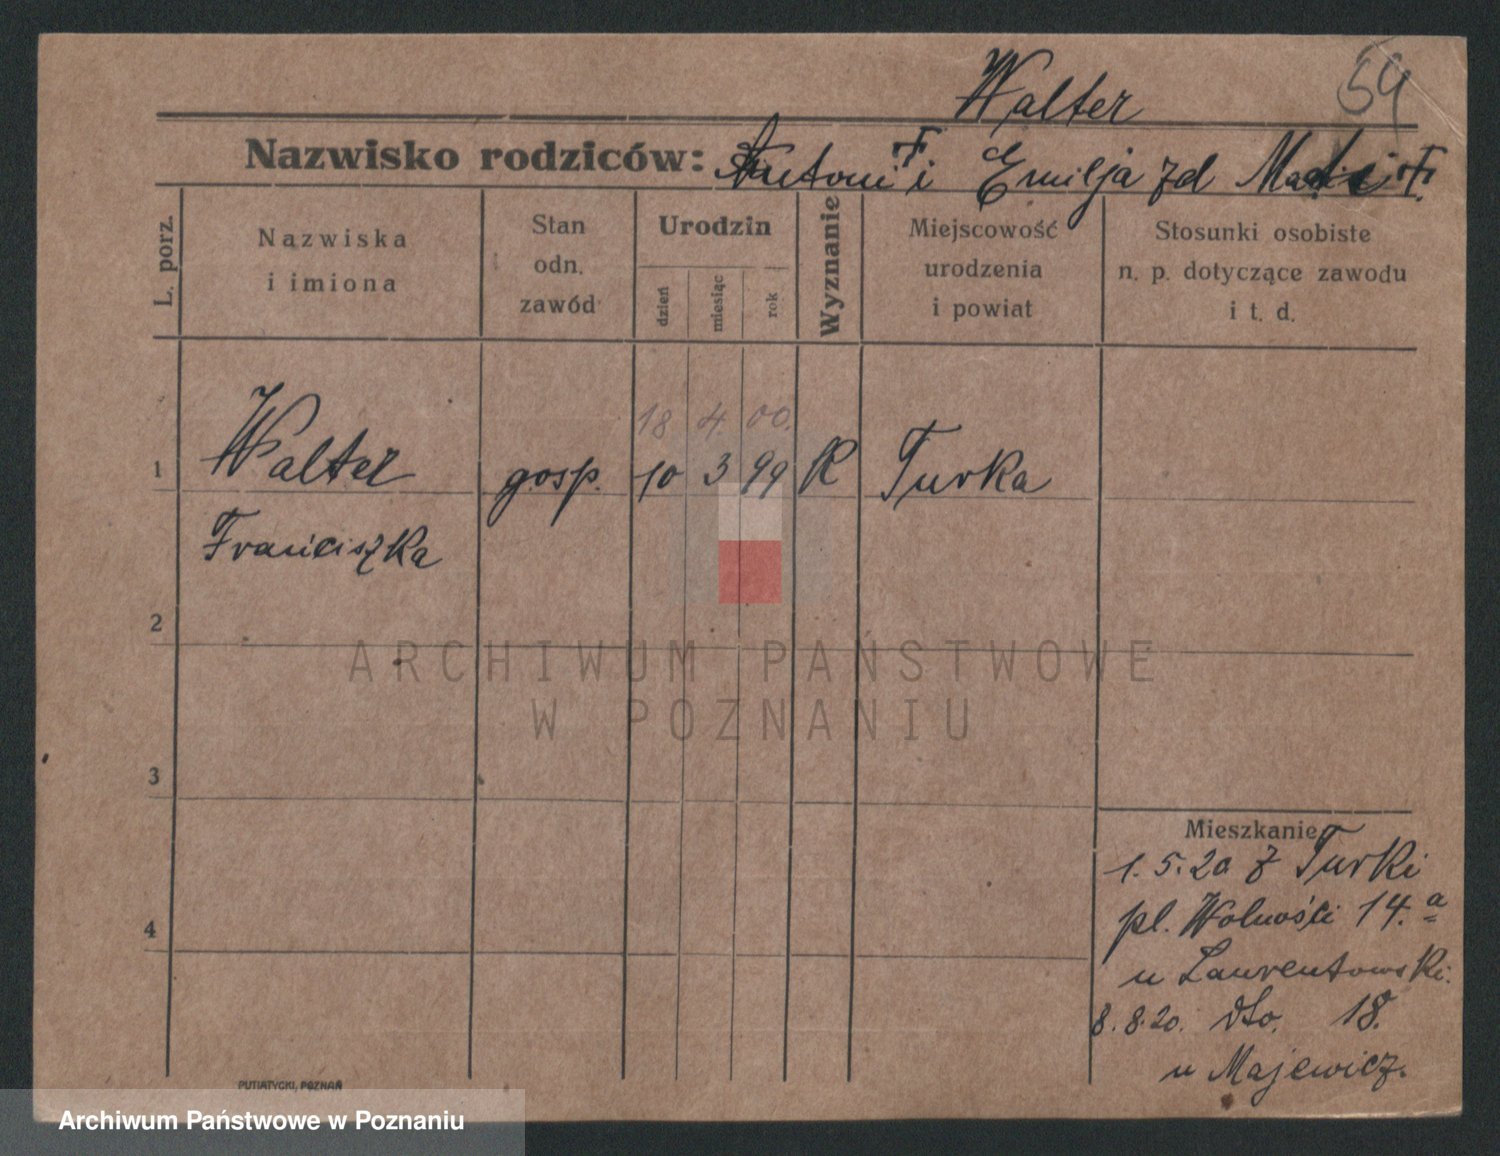 Walter 59
Nazwisko rodziców: Antoni F. i Emilja zd F.
L. porz.
Nazwiska
i imiona
Stan
odn.
zawód
Urodzin
dzień
miesiąc
rok
Wyznanie
Miejscowość
urodzenia
i powiat
Stosunki osobiste
n. p. dotyczące zawodu
i t. d.
18 4. 00.
1 Walter gosp. 10 3 99 R Turka
Franciszka
2
ARCHIWUM PAŃSTWOWE
W POZNANIU
3
Mieszkanie
1.5.20 z Turki
pl. Wolności 14.a
4
u Laurentowski.
8.8.20. dto. 18.
u Majewicz.
PUTIATYCKI, POZNAŃ
Archiwum Państwowe w Poznaniu